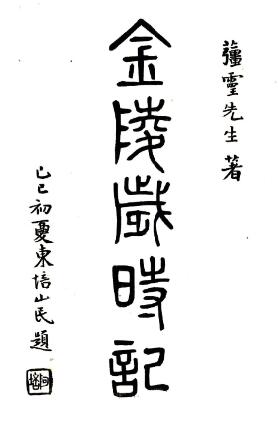 靈先生著
金陵歲時記
己巳初夏東培山民題